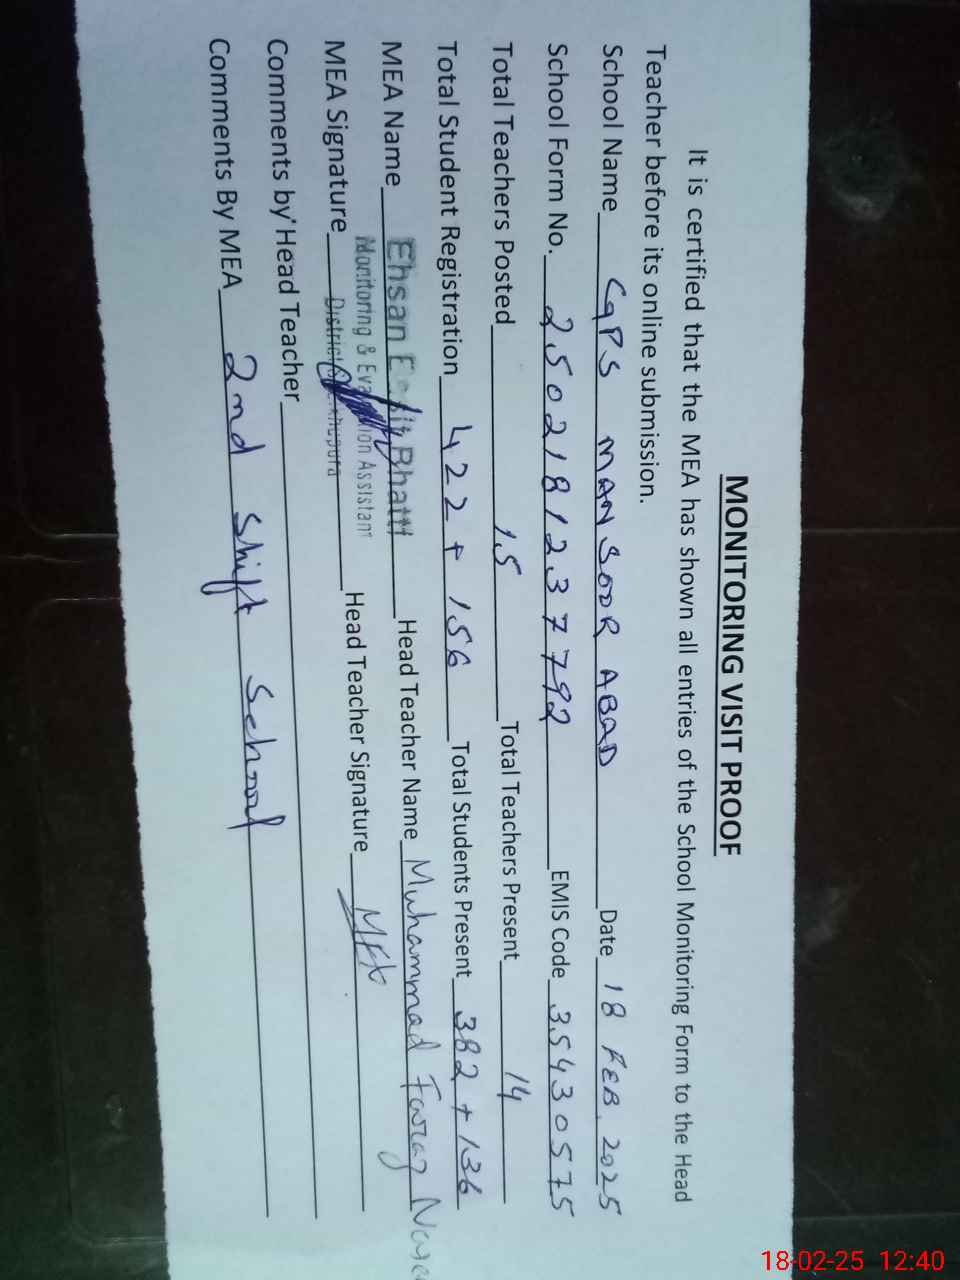 MONITORING VISIT PROOF
It is certified that the MEA has shown all entries of the School Monitoring Form to the Head
Teacher before its online submission.
School Name GPS MANSOOR ABAD Date 18 FEB. 2025
School Form No. 2502181237792 EMIS Code 35430575
Total Teachers Posted 15 Total Teachers Present 14
Total Student Registration 422 + 156 Total Students Present 382 + 136
MEA Name Ehsan Bhatti Head Teacher Name Muhammad Farooq
Monitoring & Evaluation Assistant
MEA Signature District Sheikhupura Head Teacher Signature
Comments by Head Teacher
Comments By MEA 2nd Shift School
18-02-25 12:40